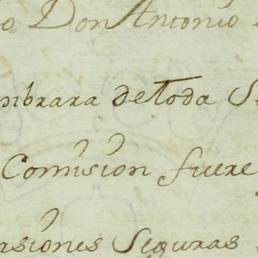 o Don Antonio
mbrara de Toda S
Comision fuere
rsiones Seguras